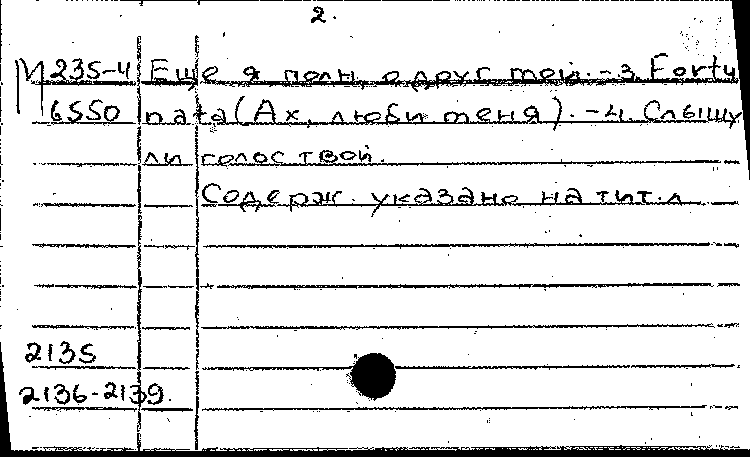 2.
М 235-4 Еще я полн, о друг мой. - 3. Fortu
6550 nata (Ах, люби меня). - 4. Слышу
ли голос твой.
Содерж. указано на тит. л
2135
2136-2139.